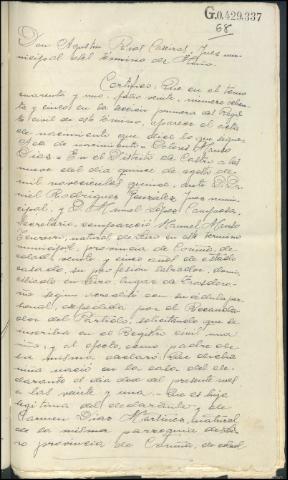 G.0.429.337
68
Don Agustín Pérez, Juez mu-
nicipal del Término de
Certifico: Que en el tomo
cuarenta y uno, folio veinte, número ochen-
ta y cinco en la sección primera del Regis-
tro civil de este término, aparece el acta
de nacimiento que dice lo que sigue:
Acta de nacimiento = Dolores
Díaz = En el Distrito de Castro a las
nueve del día quince de agosto de
mil novecientos quince, ante D. Da-
niel Rodríguez González, Juez muni-
cipal, y D. Manuel López
Secretario, compareció Manuel
natural de en este término
municipal, provincia de Coruña, de
edad veinte y cinco años, de estado
casado, su profesión labrador, domi-
ciliado en lugar de
según acredita con su cédula per-
sonal, expedida por el Recauda-
dor del Partido, solicitando que se
inscriba en el Registro civil una
ni- y al efecto, como padre de
la misma declaró: Que dicha
niña nació en la casa del de-
clarante el día doce del presente mes
a las veinte y una. = Que es hija
legítima del declarante y de
Carmen Díaz Martínez, natural
de la misma parroquia de
provincia de Coruña, de edad